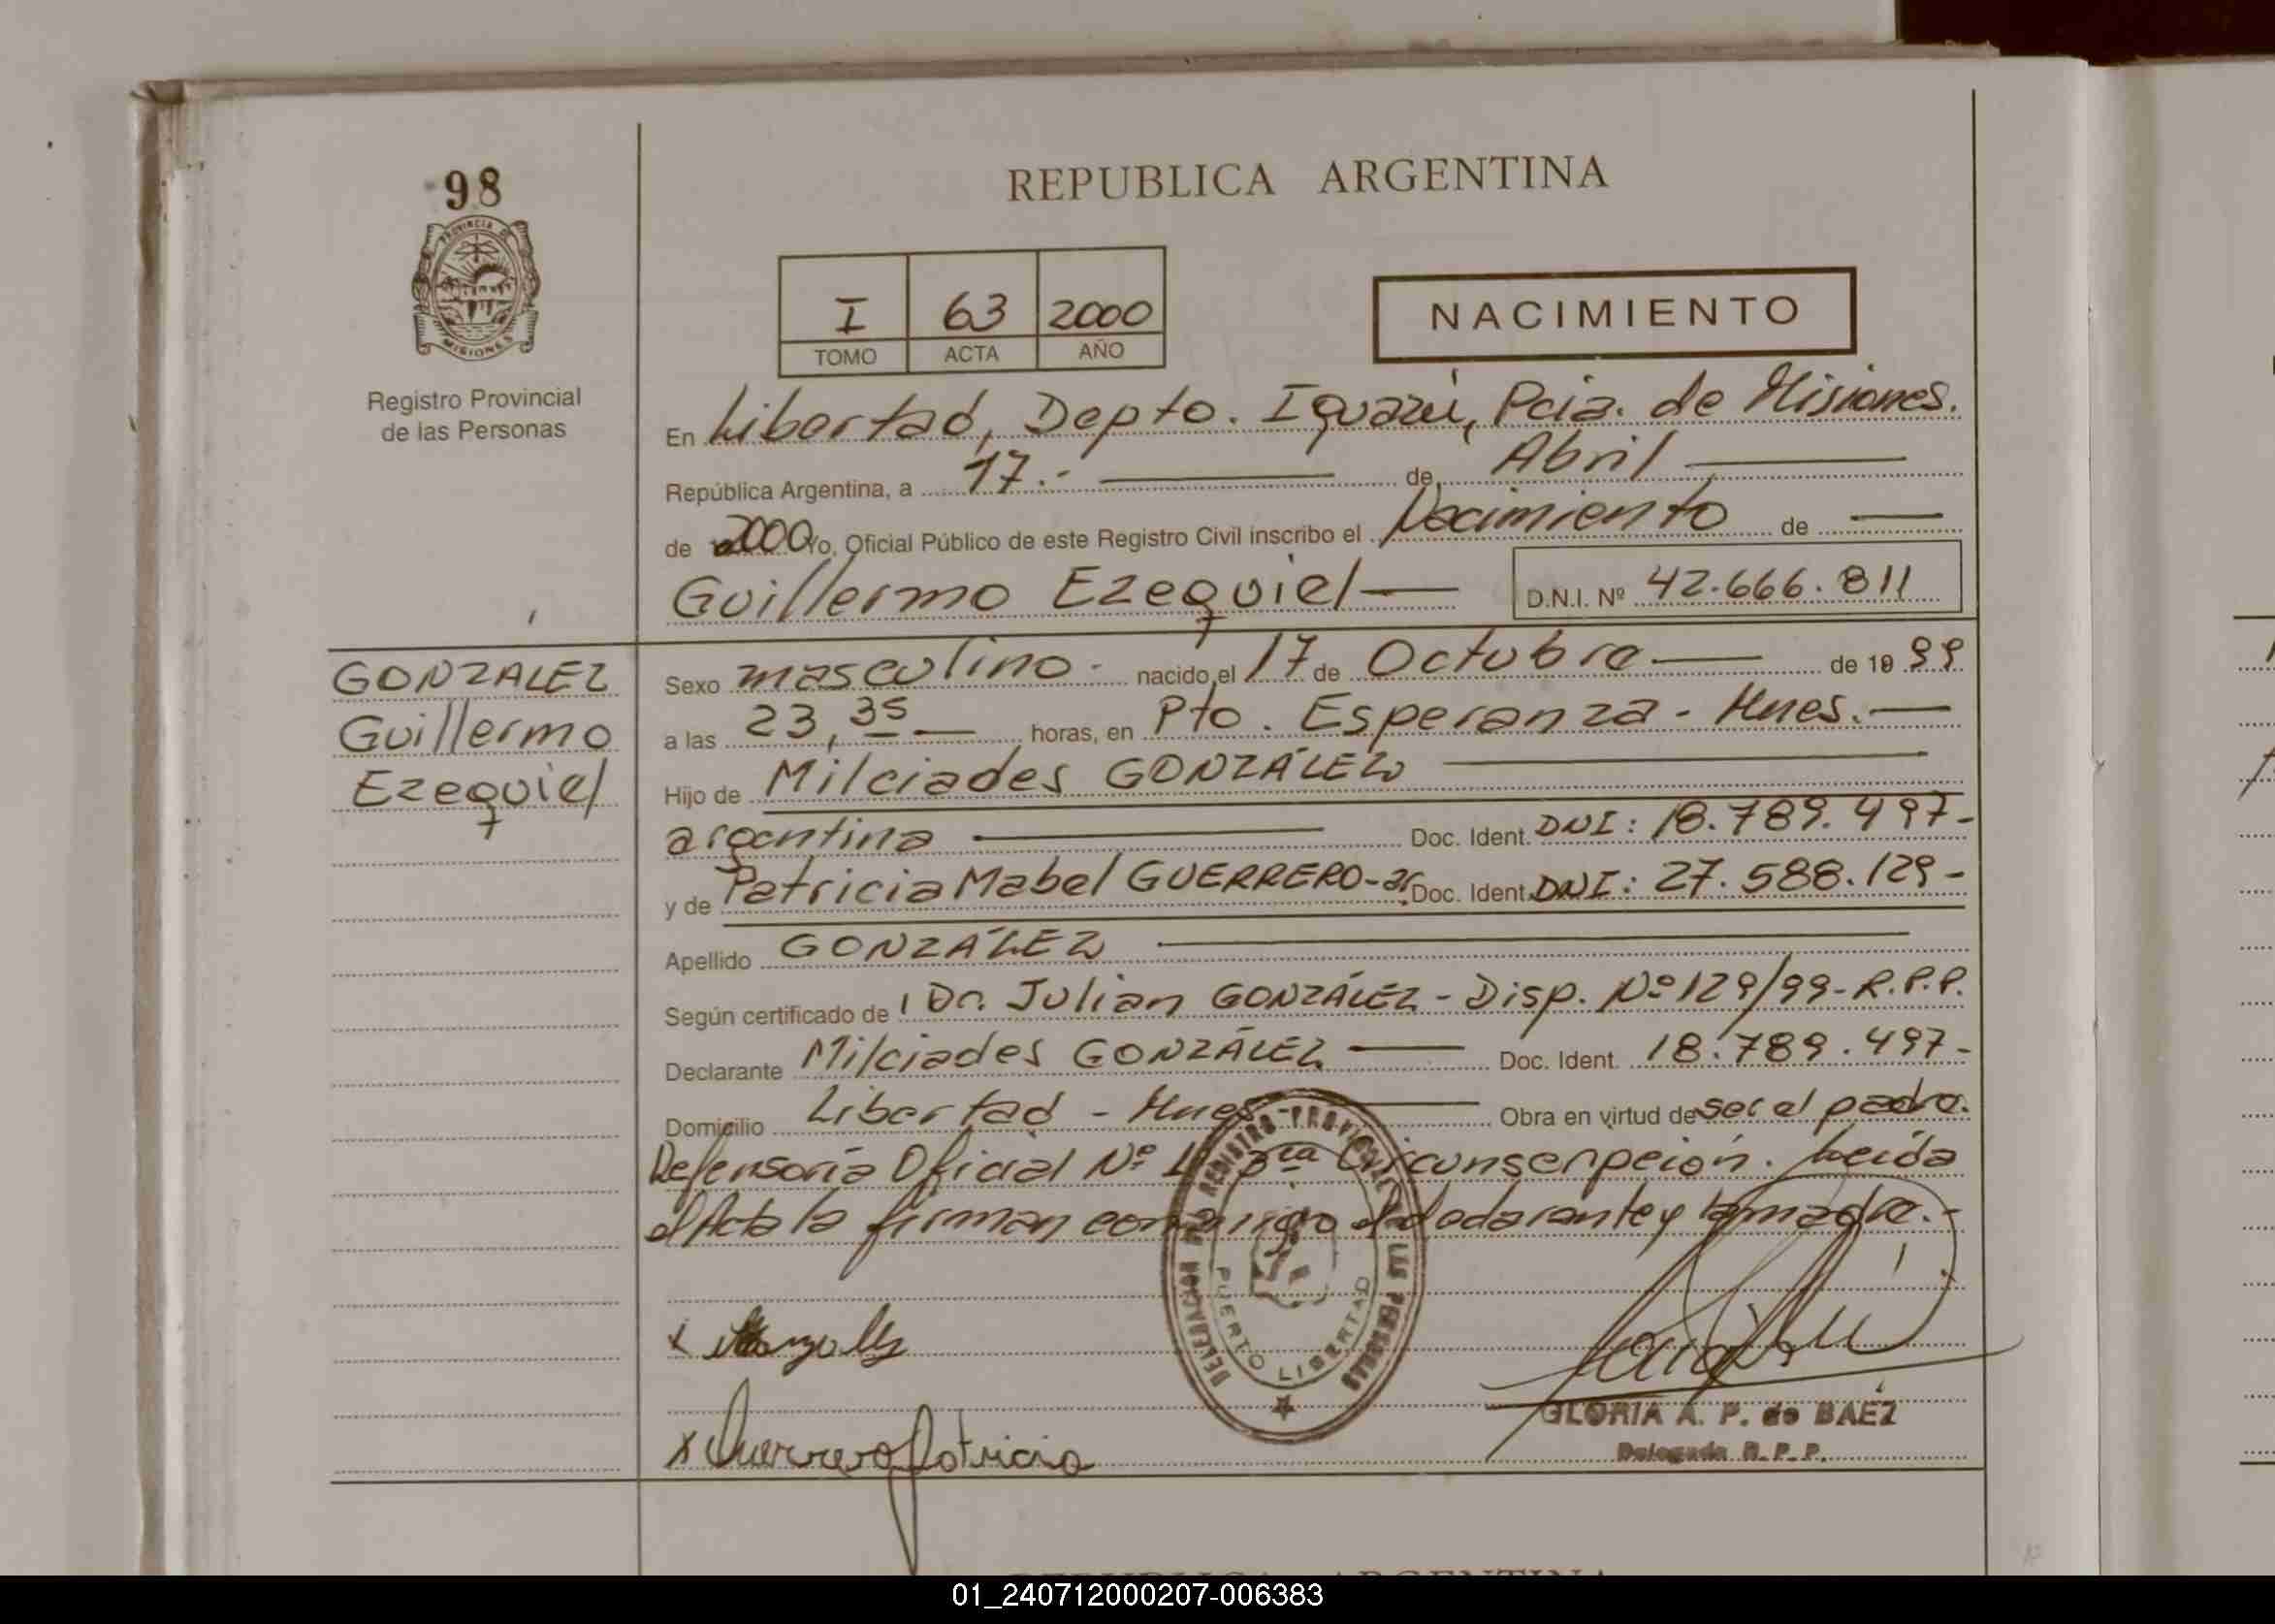 98
PROVINCIA DE
MISIONES
Registro Provincial
de las Personas
REPUBLICA ARGENTINA
I 63 2000
TOMO ACTA AÑO
NACIMIENTO
En Libertad, Depto. Iguazú, Pcia. de Misiones.
República Argentina, a 17.- de Abril
de 2000 Yo, Oficial Público de este Registro Civil inscribo el Nacimiento de
Guillermo Ezequiel D.N.I. Nº 42.666.811
GONZALEZ
Guillermo
Ezequiel
Sexo masculino - nacido el 17 de Octubre de 19 99
a las 23,35 horas, en Pto. Esperanza - Mnes.
Hijo de Milciades GONZÁLEZ
argentina Doc. Ident. DNI: 18.789.497-
y de Patricia Mabel GUERRERO - ar. Doc. Ident. DNI: 27.588.129-
Apellido GONZÁLEZ
Según certificado de Dr. Julian GONZÁLEZ - Disp. Nº 129/99 - R.P.P.
Declarante Milciades GONZÁLEZ Doc. Ident. 18.789.497-
Domicilio Libertad - Mnes- Obra en virtud de ser el padre.
Defensoría Oficial Nº 3ra Circunscripción. Leída
el Acta la firman conmigo el declarante y la madre.-
DELEGACION REGISTRO PROVINCIAL DE LAS PERSONAS
PUERTO LIBERTAD
x
x Guerrero Patricia
GLORIA A. P. de BAEZ
Delegada R. P. P.
REPUBLICA ARGENTINA
01_240712000207-006383